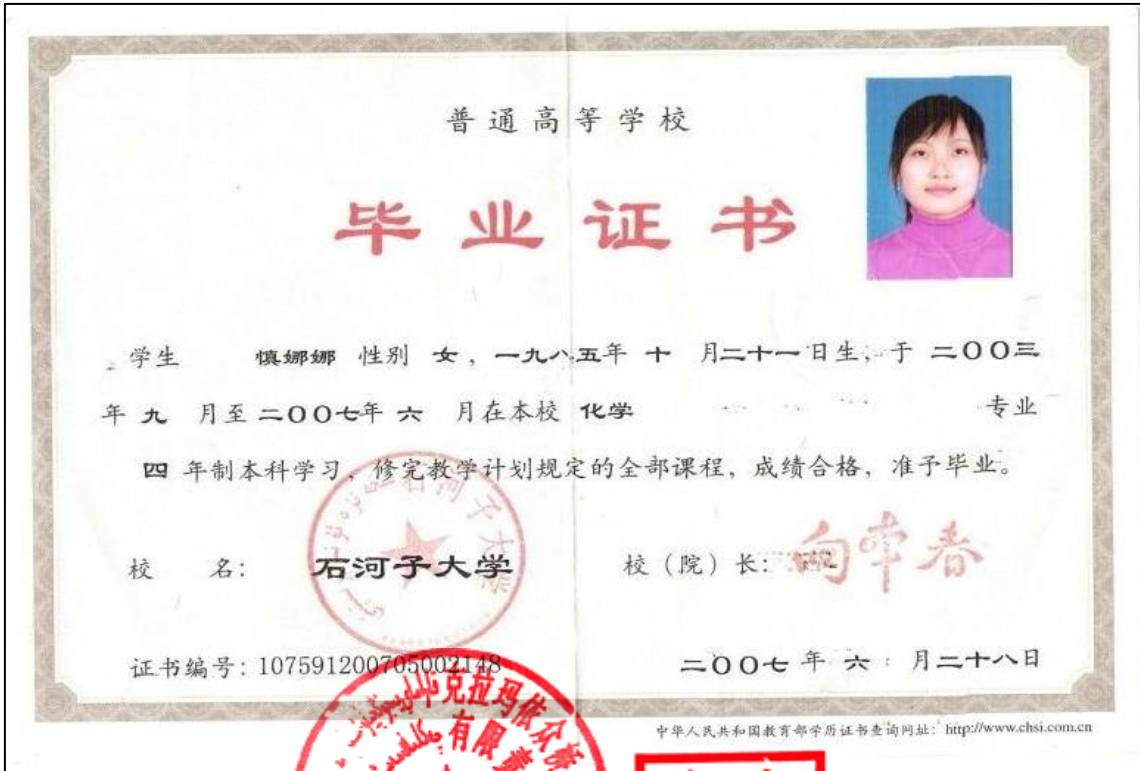 普通高等学校
毕业证书
学生 慎娜娜 性别 女，一九八五年 十 月二十一日生，于 二〇〇三
年 九 月至 二〇〇七年 六 月在本校 化学 专业
四 年制本科学习，修完教学计划规定的全部课程，成绩合格，准予毕业。
石河子大学
校 名： 石河子大学 校（院）长： 向本春
证书编号：107591200705002148 二〇〇七 年 六 月二十八日
克拉玛依众
有限责
中华人民共和国教育部学历证书查询网址：http://www.chsi.com.cn